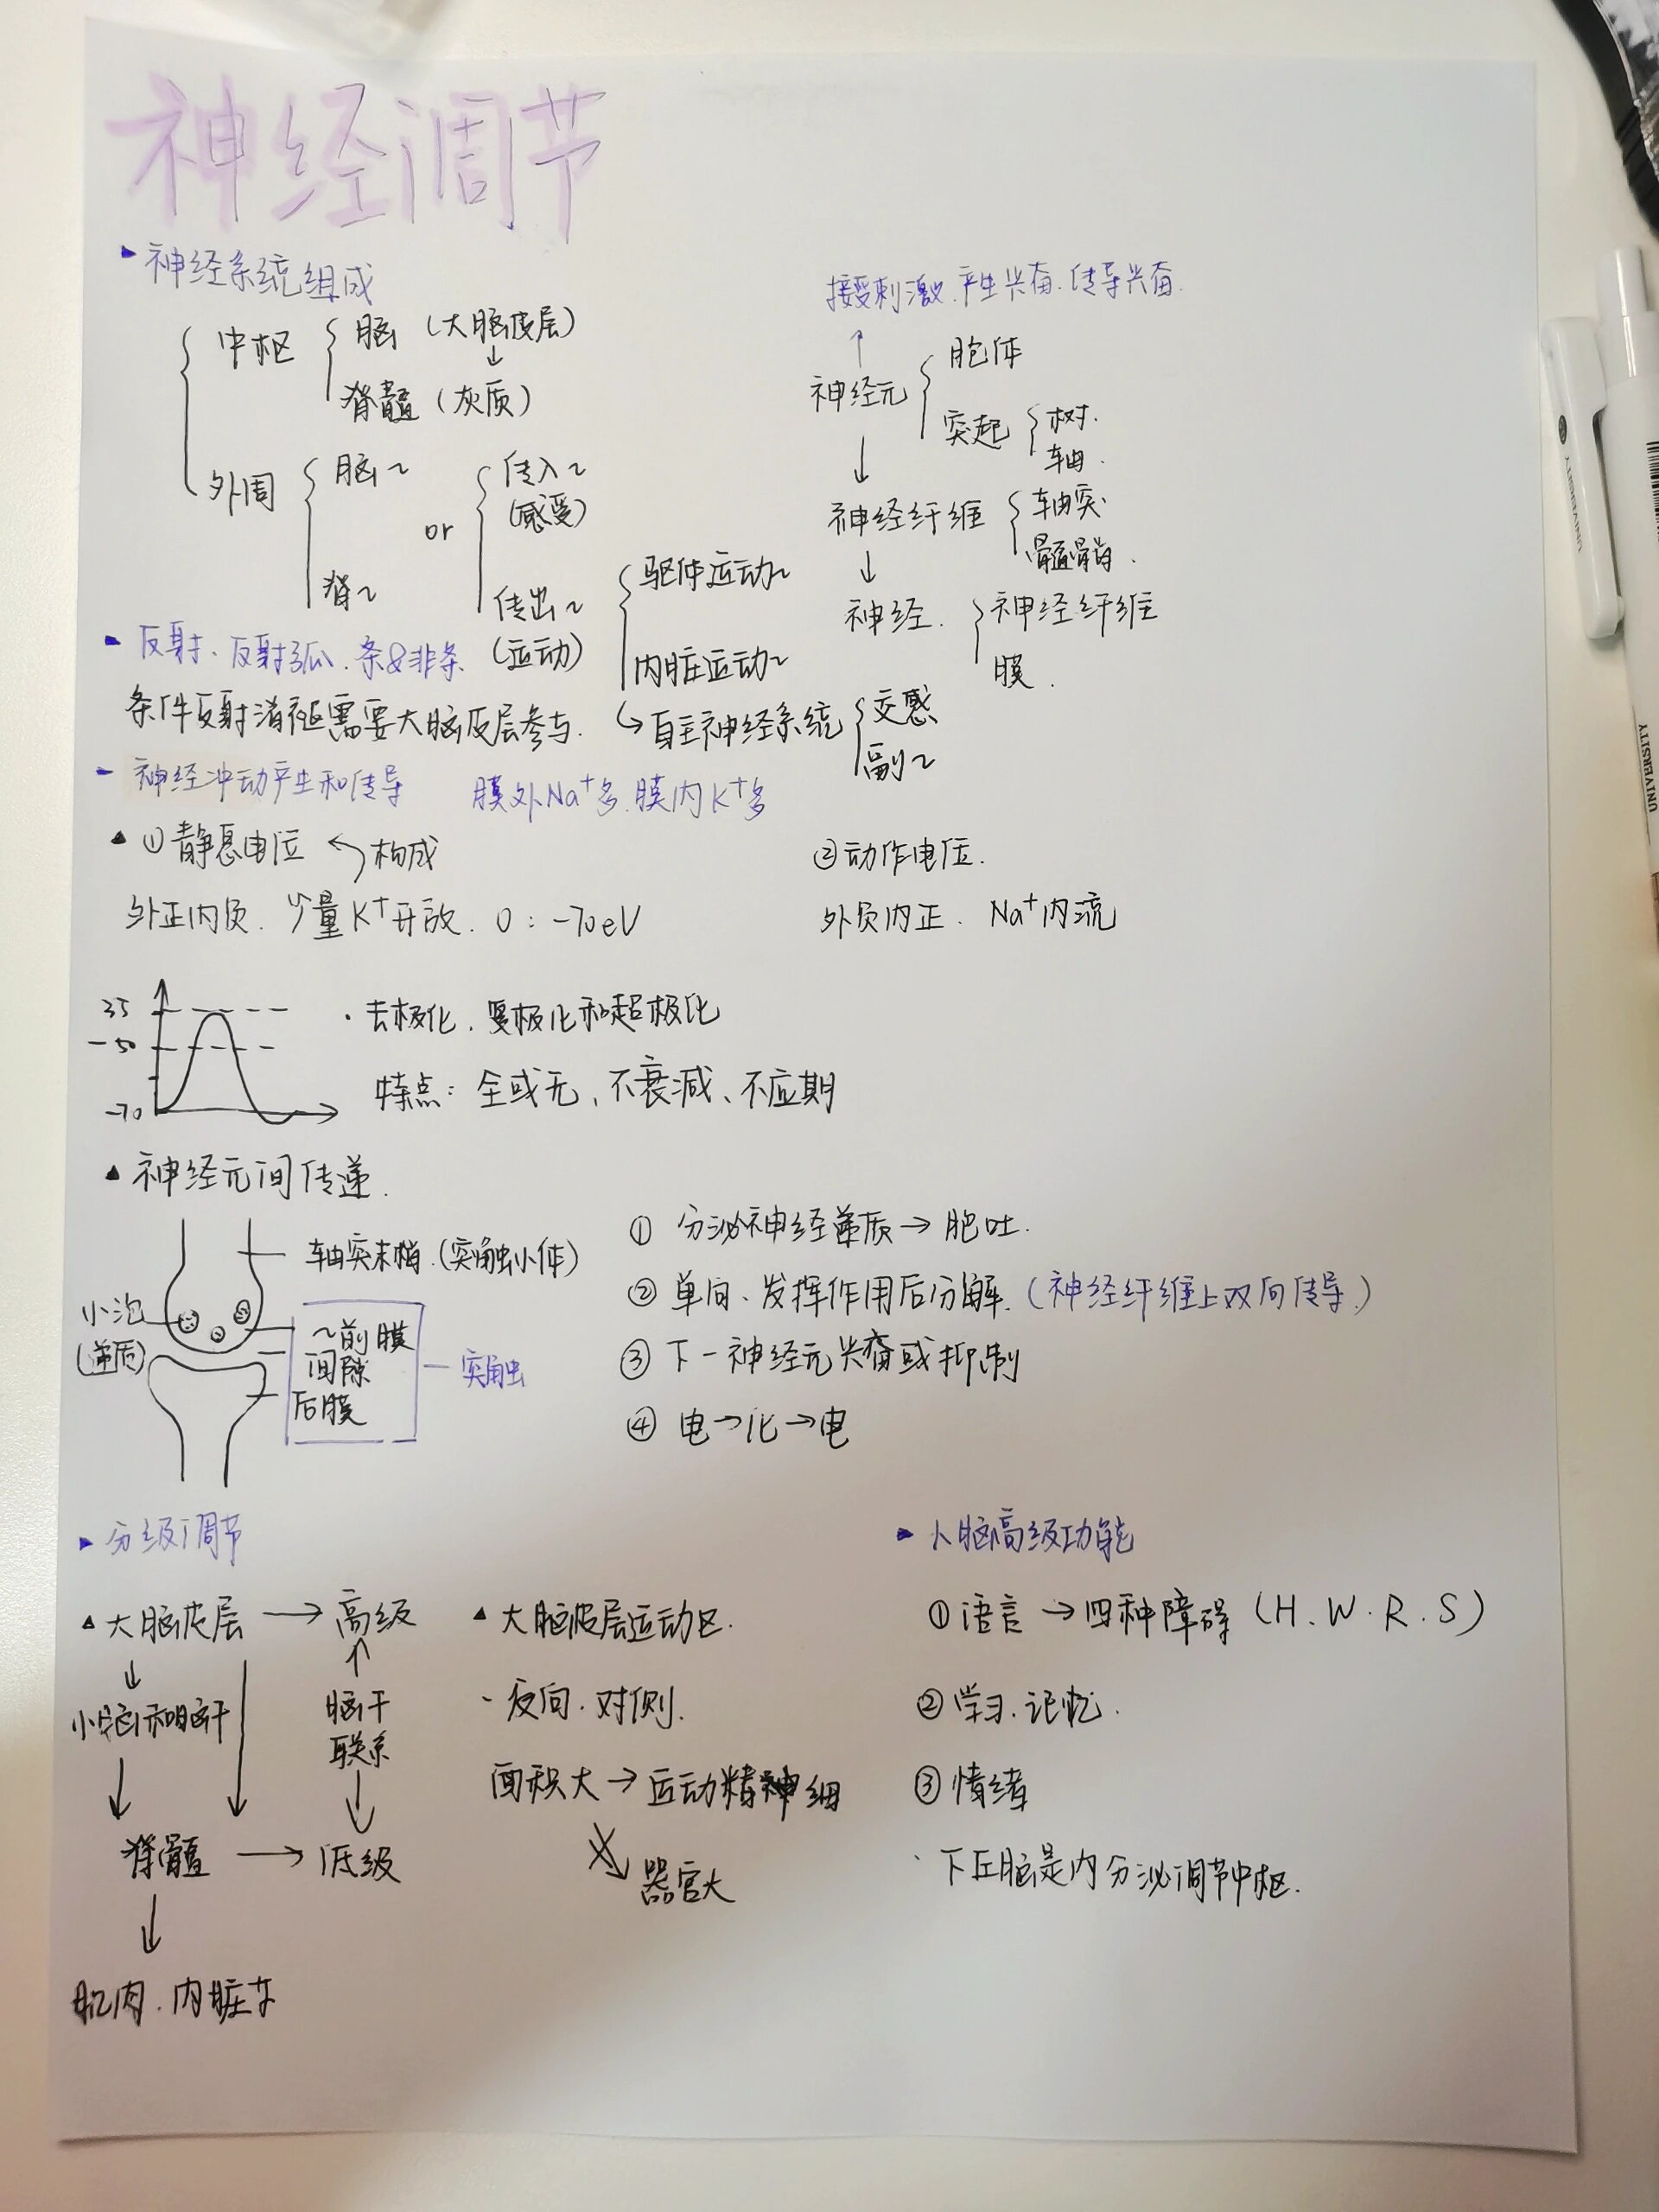 神经调节
神经系统组成
中枢 脑 (大脑皮层)
脊髓 (灰质)
外周 脑~ or 传入~
(感受)
脊~ 传出~
(运动)
驱体运动~
内脏运动~
自主神经系统 交感
副~
接受刺激.产生兴奋.传导兴奋.
神经元 胞体
突起 树.
轴.
神经纤维 轴突
髓鞘.
神经. 神经纤维
膜.
反射、反射弧.条&非条.
条件反射消褪需要大脑皮层参与.
神经冲动产生和传导 膜外Na⁺多.膜内K⁺多
①静息电位 构成
外正内负. 少量K⁺开放. 0:-70eV
②动作电位.
外负内正. Na⁺内流
35
-50
-70
·去极化.复极化和超极化
特点:全或无、不衰减、不应期
神经元间传递.
轴突末梢.(突触小体)
小泡
(递质)
~前膜
间隙
后膜
突触
① 分泌神经递质→胞吐.
② 单向、发挥作用后分解.(神经纤维上双向传导.)
③ 下一神经元兴奋或抑制
④ 电→化→电
分级调节
大脑皮层→高级
小脑和脑干
脑干
联系
脊髓→低级
肌肉.内脏等
大脑皮层运动区.
·反向.对侧.
面积大→运动精细
器官大
人脑高级功能
①语言→四种障碍(H.W.R.S)
②学习.记忆.
③情绪
·下丘脑是内分泌调节中枢.
UNIVERSITY
UNIVERSITY